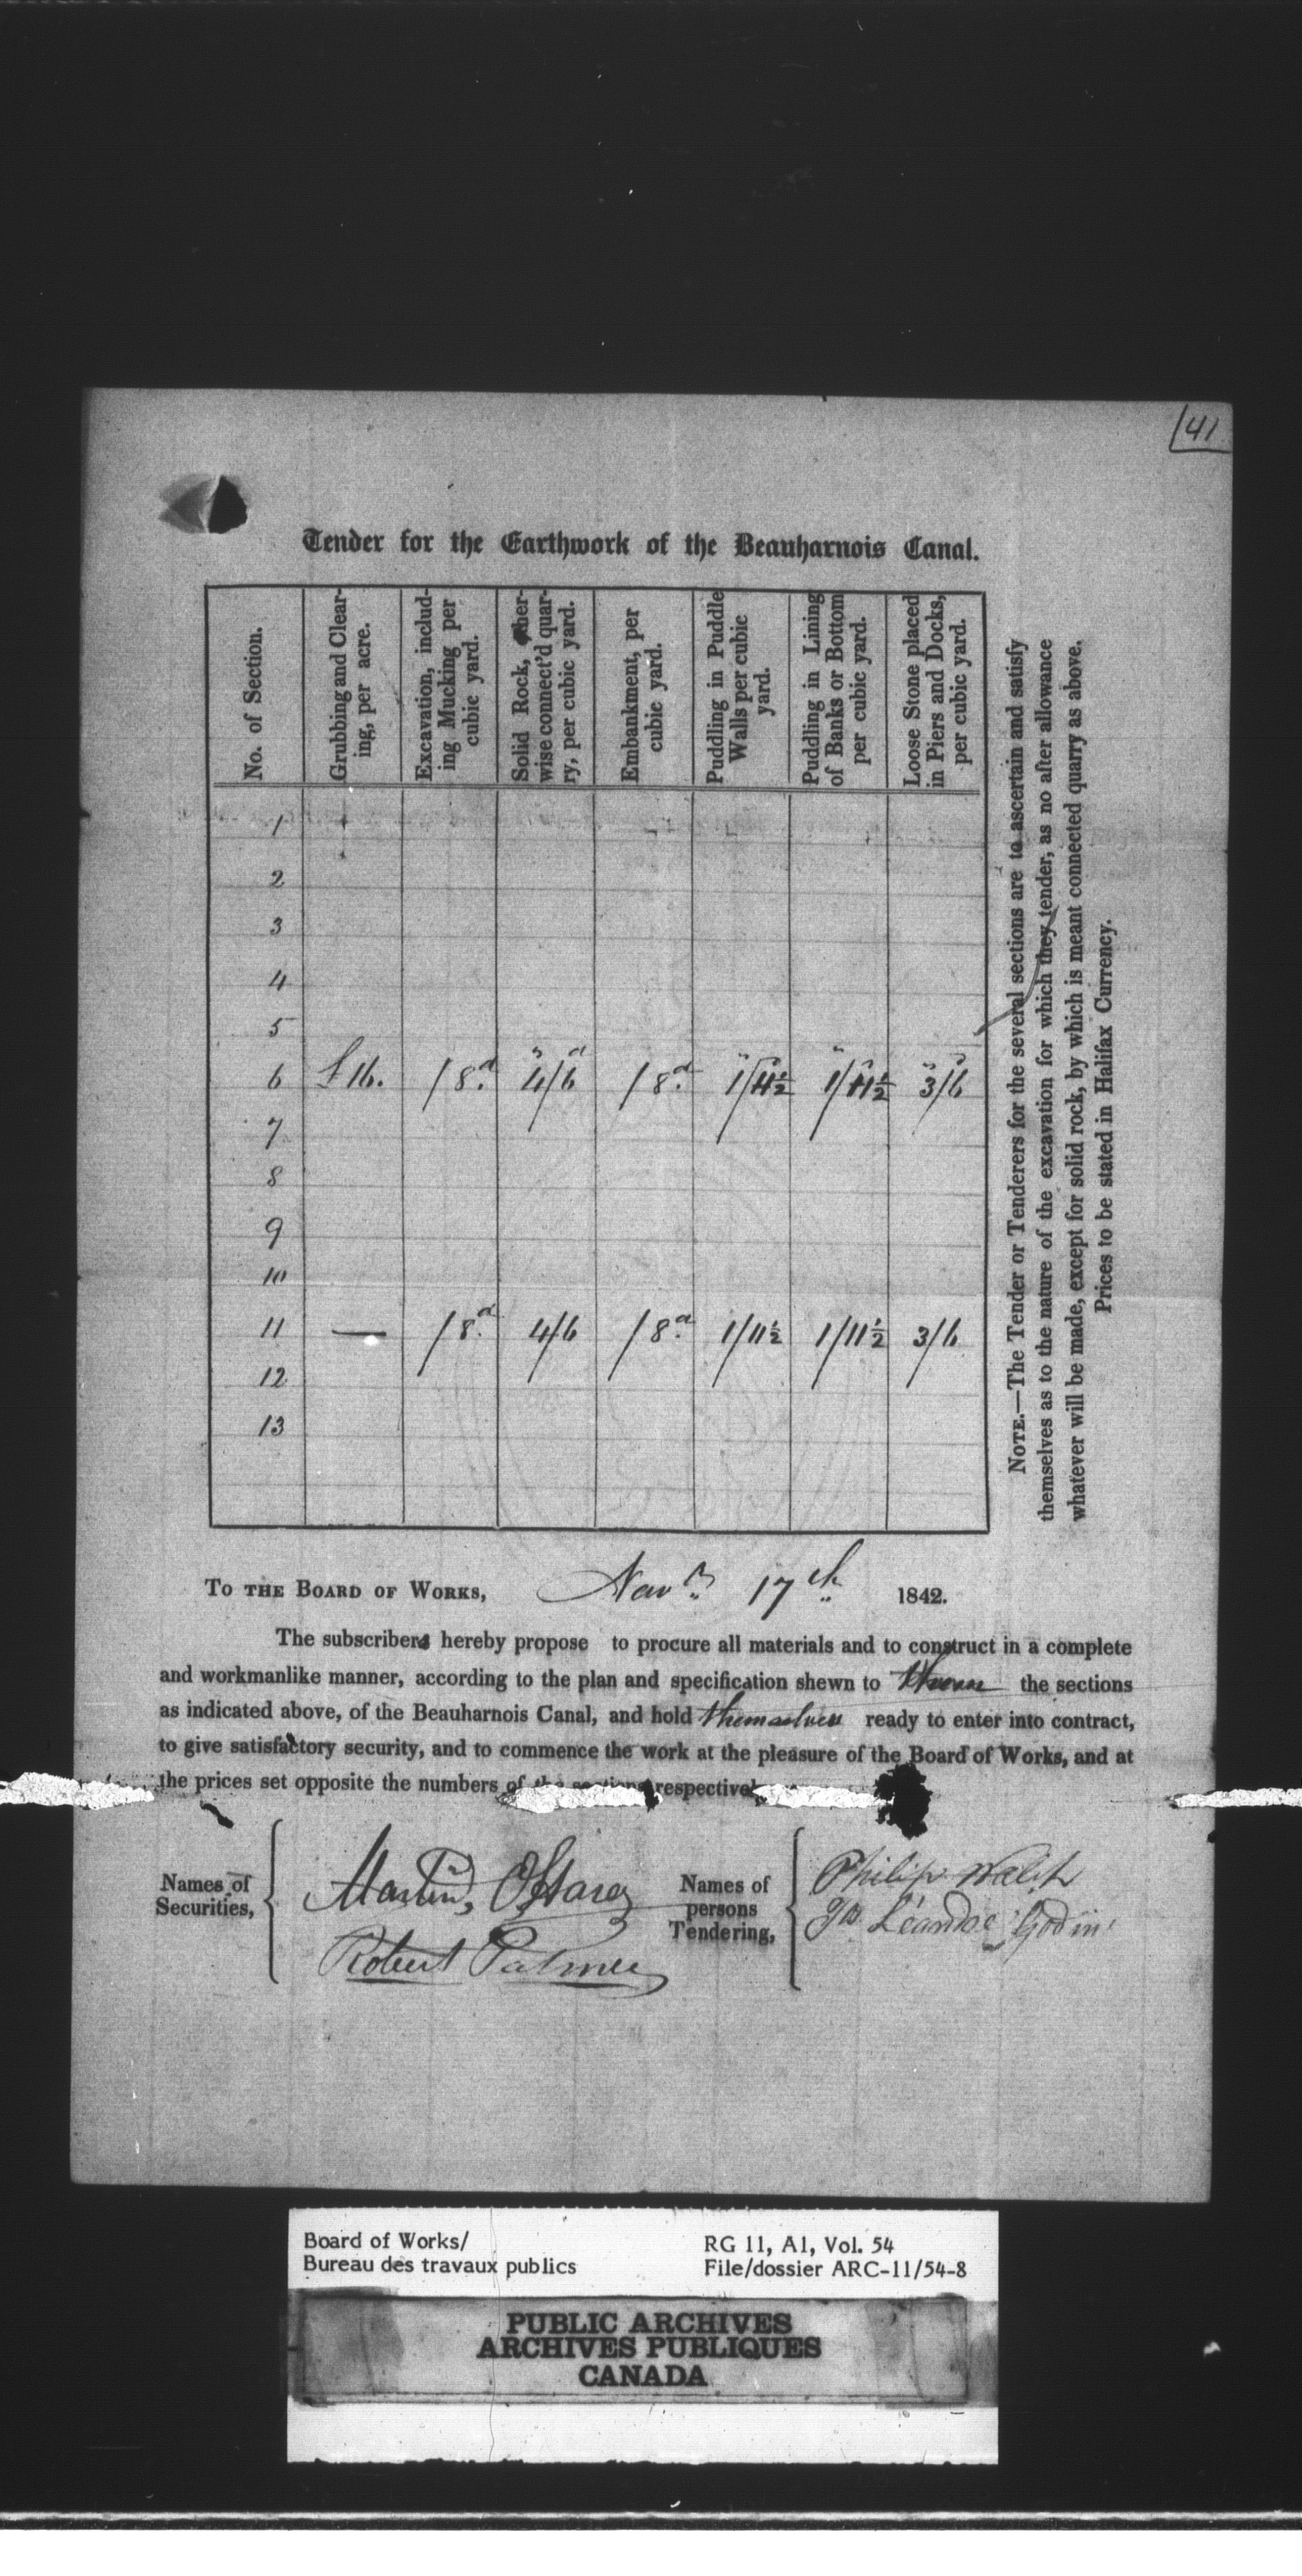 141
Tender for the Earthwork of the Beauharnois Canal.
No. of Section.
Grubbing and Clear-
ing, per acre.
Excavation, includ-
ing Mucking per
cubic yard.
Solid Rock, other-
wise connect'd quar-
ry, per cubic yard.
Embankment, per
cubic yard.
Puddling in Puddle
Walls per cubic
yard.
Puddling in Lining
of Banks or Bottom
per cubic yard.
Loose Stone placed
in Piers and Docks,
per cubic yard.
1
2
3
4
5
6 £16. /8d. 4/6 /8d. 1/11½ 1/11½ 3/6
7
8
9
10
11 — /8d. 4/6 /8d. 1/11½ 1/11½ 3/6
12
13
NOTE.—The Tender or Tenderers for the several sections are to ascertain and satisfy
themselves as to the nature of the excavation for which they tender, as no after allowance
whatever will be made, except for solid rock, by which is meant connected quarry as above.
Prices to be stated in Halifax Currency.
TO THE BOARD OF WORKS, Novr 17th 1842.
The subscribers hereby propose to procure all materials and to construct in a complete
and workmanlike manner, according to the plan and specification shewn to them the sections
as indicated above, of the Beauharnois Canal, and hold themselves ready to enter into contract,
to give satisfactory security, and to commence the work at the pleasure of the Board of Works, and at
the prices set opposite the numbers of the sections respectively
Names of
Securities,
Martin O'Hara
Robert Palmer
Names of
persons
Tendering,
Philip Walsh
Js Léandre Godin
Board of Works/
Bureau des travaux publics
RG 11, A1, Vol. 54
File/dossier ARC-11/54-8
PUBLIC ARCHIVES
ARCHIVES PUBLIQUES
CANADA